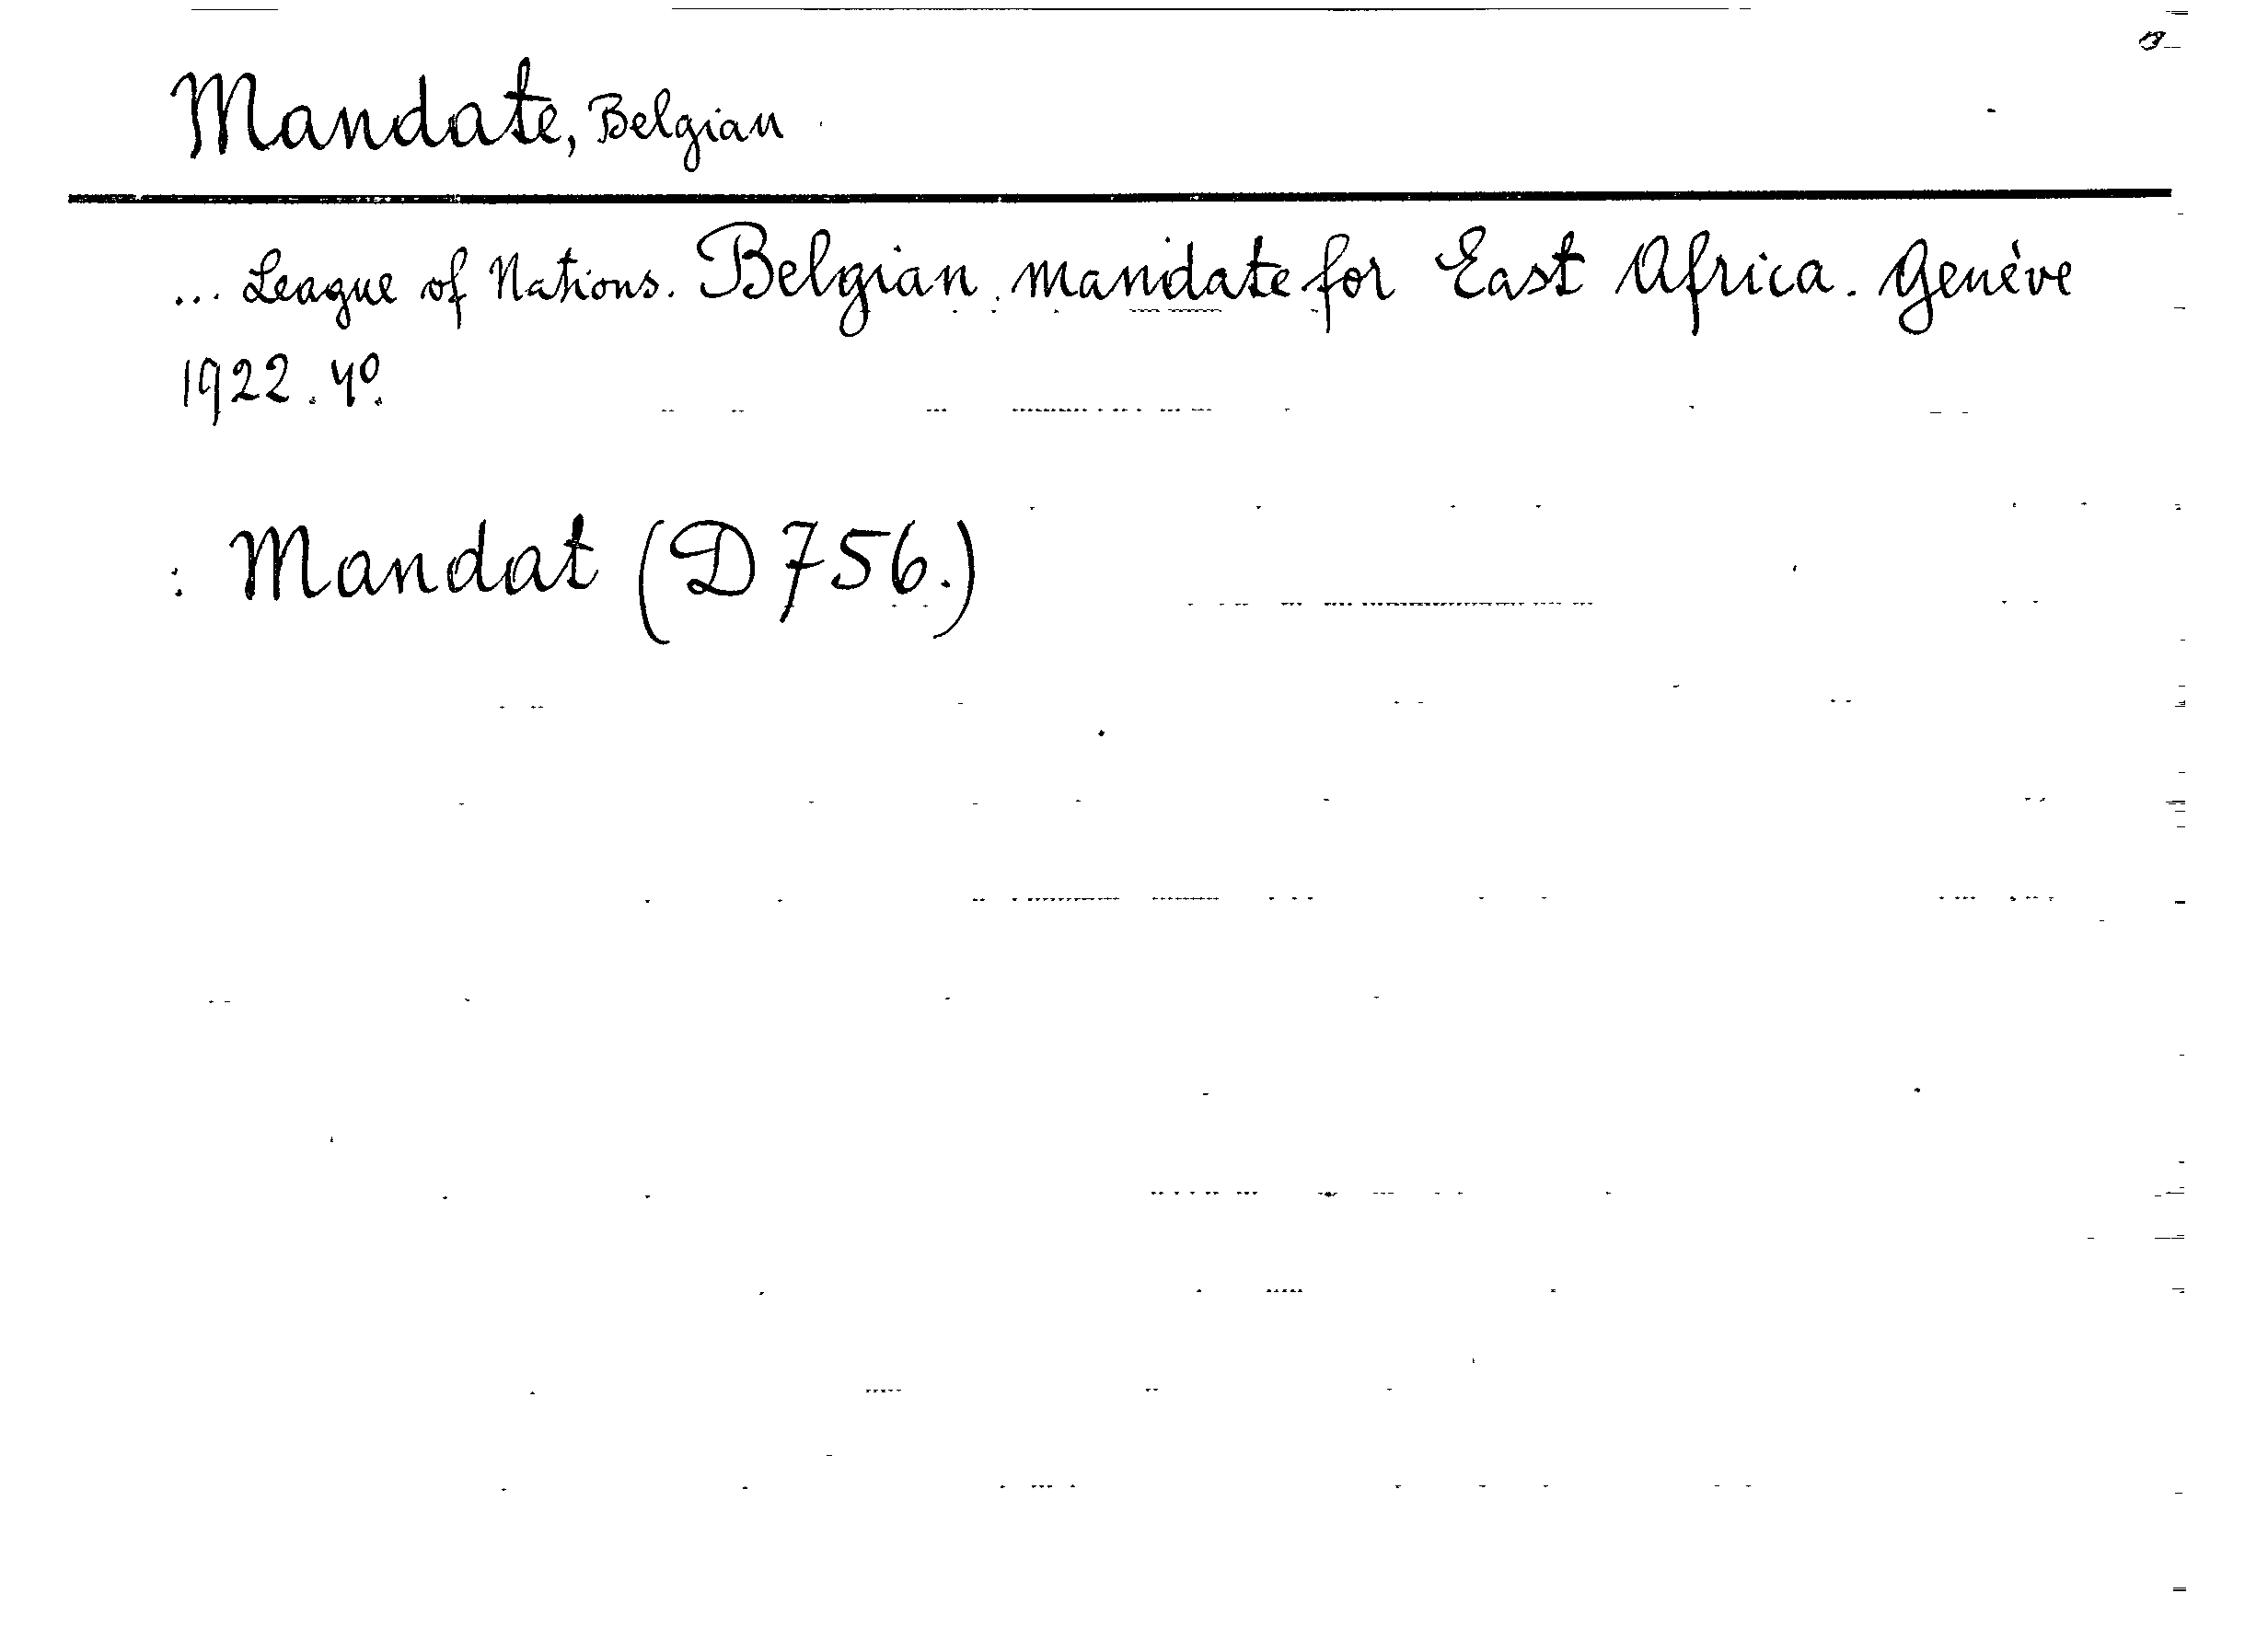 Mandate, Belgian
... League of Nations. Belgian mandate for East Africa. Genève
1922. 4º.
: Mandat (D 756.)